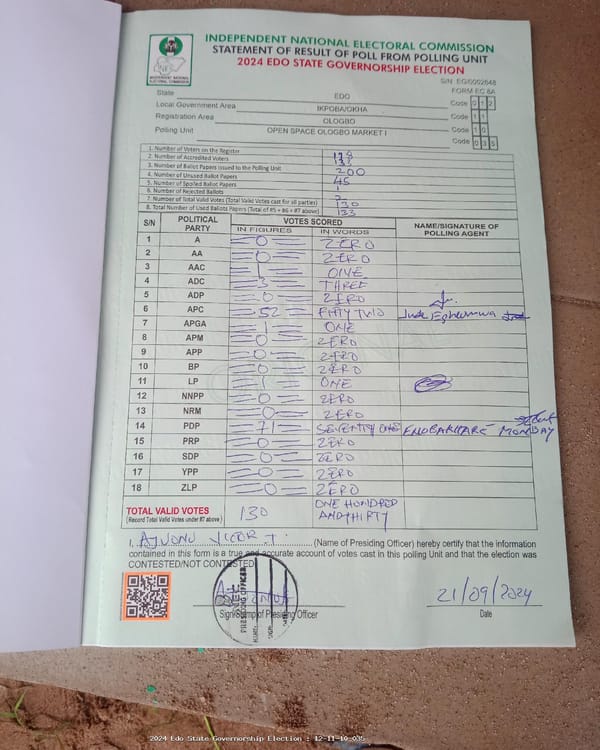 INDEPENDENT NATIONAL ELECTORAL COMMISSION
STATEMENT OF RESULT OF POLL FROM POLLING UNIT
2024 EDO STATE GOVERNORSHIP ELECTION
INDEPENDENT NATIONAL ELECTORAL COMMISSION
S/N EG/0002648
FORM EC 8A
State EDO Code 0 1 2
Local Government Area IKPOBA/OKHA Code 1 1
Registration Area OLOGBO Code 1 0
Polling Unit OPEN SPACE OLOGBO MARKET I Code 0 3 5
1. Number of Voters on the Register
2. Number of Accredited Voters
3. Number of Ballot Papers issued to the Polling Unit 200
4. Number of Unused Ballot Papers
5. Number of Spoiled Ballot Papers
6. Number of Rejected Ballots
7. Number of Total Valid Votes (Total Valid Votes cast for all parties) 130
8. Total Number of Used Ballots Papers (Total of #5 + #6 + #7 above) 133
S/N POLITICAL PARTY VOTES SCORED NAME/SIGNATURE OF POLLING AGENT
IN FIGURES IN WORDS
1 A 0 ZERO
2 AA 0 ZERO
3 AAC 1 ONE
4 ADC 3 THREE
5 ADP 0 ZERO
6 APC 52 FIFTY TWO Jude
7 APGA 1 ONE
8 APM 0 ZERO
9 APP 0 ZERO
10 BP 0 ZERO
11 LP 1 ONE
12 NNPP 0 ZERO
13 NRM 0 ZERO
14 PDP 71 SEVENTY ONE ENOBAKHARE MONDAY
15 PRP 0 ZERO
16 SDP 0 ZERO
17 YPP 0 ZERO
18 ZLP 0 ZERO
TOTAL VALID VOTES 130 ONE HUNDRED
(Record Total Valid Votes under #7 above) AND THIRTY
I, AJUONU VICTOR .T. (Name of Presiding Officer) hereby certify that the information
contained in this form is a true and accurate account of votes cast in this polling Unit and that the election was
CONTESTED/NOT CONTESTED
INEC
PRESIDING OFFICER
21/09/2024
Sign/Stamp of Presiding Officer Date
2024 Edo State Governorship Election : 12-11-10_035